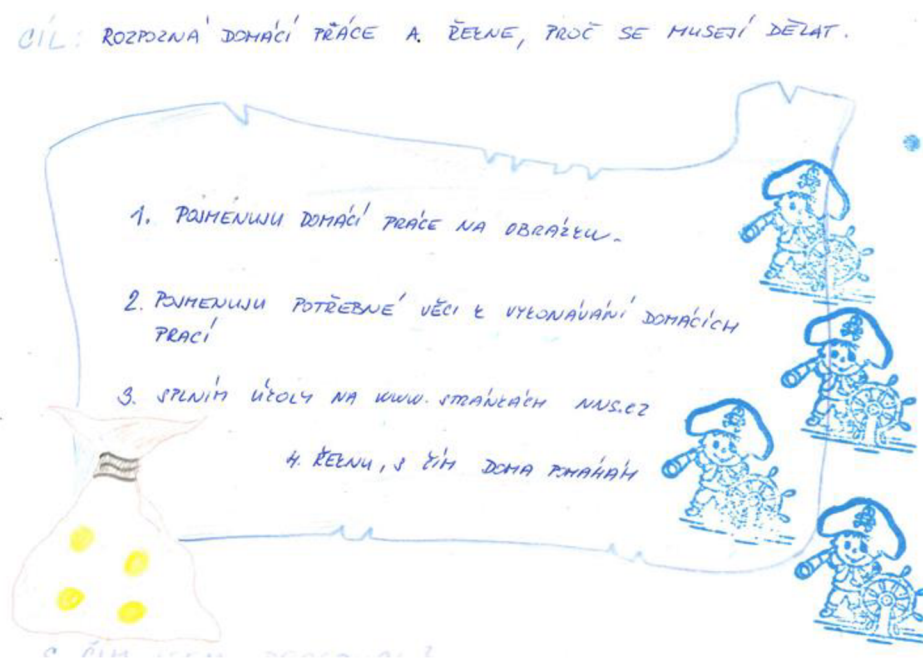 CÍL: ROZPOZNÁ DOMÁCÍ PRÁCE A ŘEKNE, PROČ SE MUSEJÍ DĚLAT.
1. POJMENUJU DOMÁCÍ PRÁCE NA OBRÁZKU.
2. POJMENUJU POTŘEBNÉ VĚCI K VYKONÁVÁNÍ DOMÁCÍCH
PRACÍ
3. SPLNÍM ÚKOLY NA WWW. STRÁNKÁCH NNS.CZ
4. ŘEKNU, S ČÍM DOMA POMÁHÁM